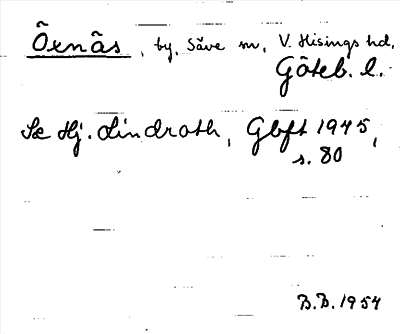 Öxnäs, by, Säve sn, V. Hisings hd,
Göteb. l.
Se Hj. Lindroth, Gbft 1945,
s. 80
B.B. 1954